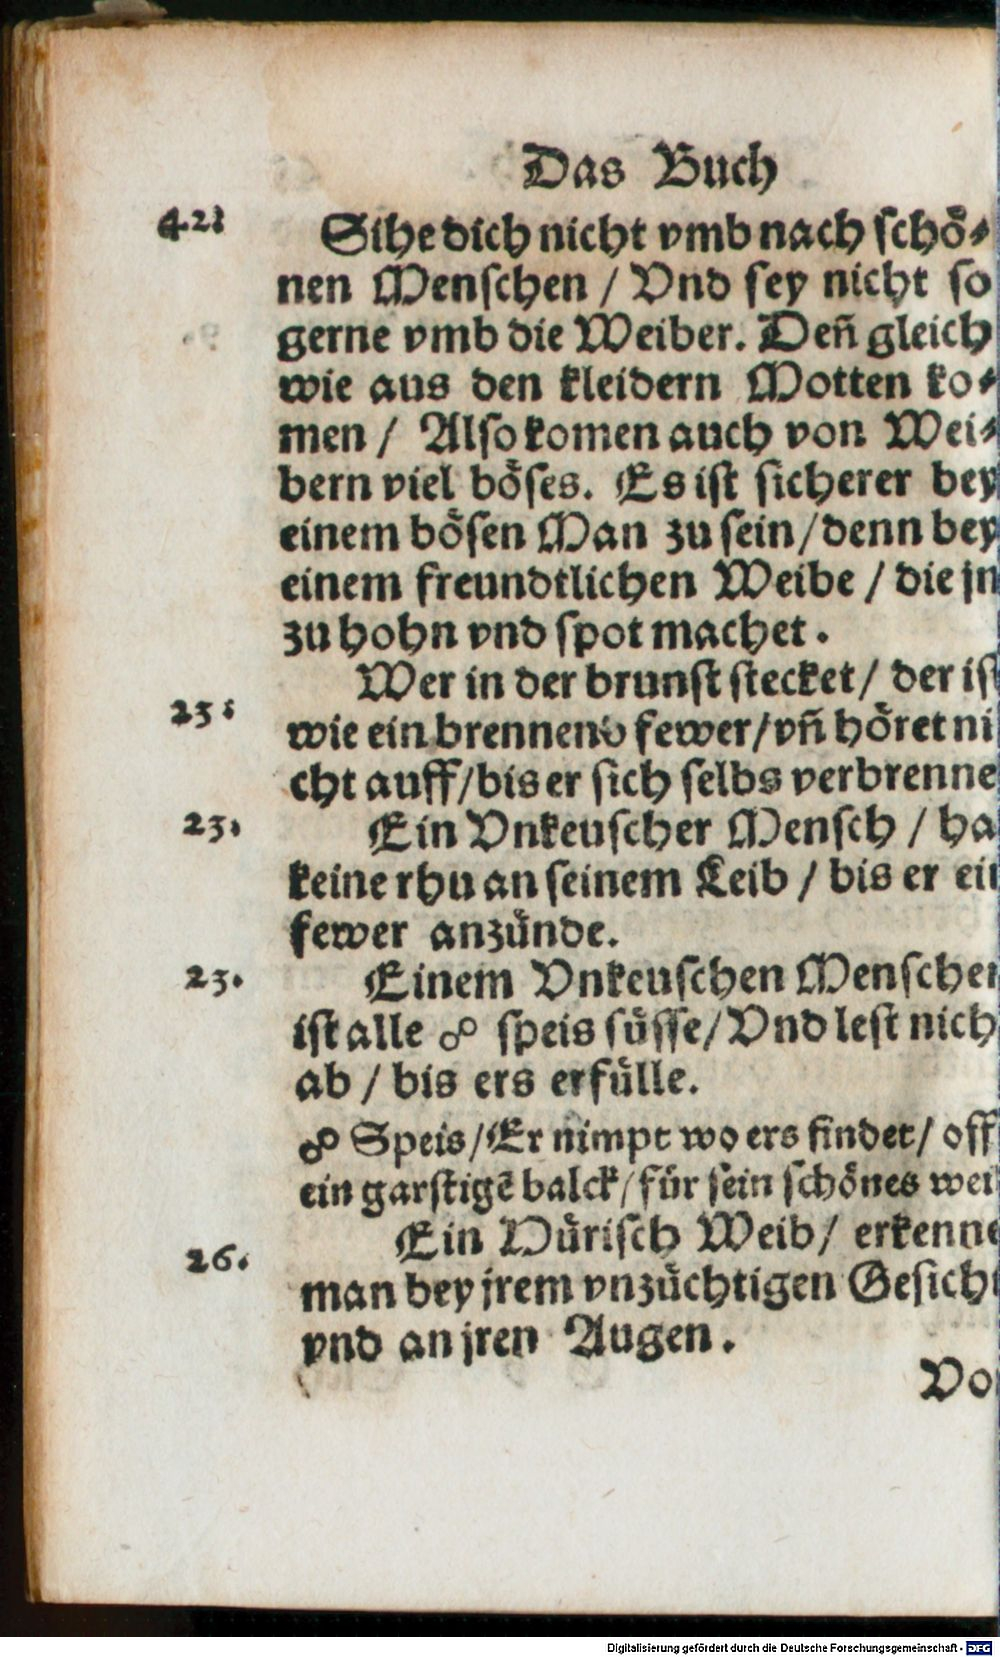 Das Buch
42: Sihe dich nicht vmb nach schö⸗
nen Menschen / Vnd sey nicht so
gerne vmb die Weiber. Deñ gleich
wie aus den kleidern Motten ko⸗
men / Also komen auch von Wei⸗
bern viel böses. Es ist sicherer bey
einem bösen Man zu sein/denn bey
einem freundtlichen Weibe / die jn
zu hohn vnd spot machet.
Wer in der brunst stecket/ der ist
23: wie ein brennend fewer/vñ höret ni
cht auff/bis er sich selbs verbrenne
23. Ein Vnkeuscher Mensch / ha
keine rhu an seinem Leib / bis er ein
fewer anzünde.
23. Einem Vnkeuschen Menschen
ist alle ☍ speis süsse/Vnd lest nich
ab / bis ers erfülle.
☍ Speis/Er nimpt wo ers findet/ off
ein garstigẽ balck/für sein schönes wei
Ein Hürisch Weib/ erkenne
26. man bey jrem vnzüchtigen Gesicht
vnd an jren Augen.
Vo
Digitalisierung gefördert durch die Deutsche Forschungsgemeinschaft - DFG